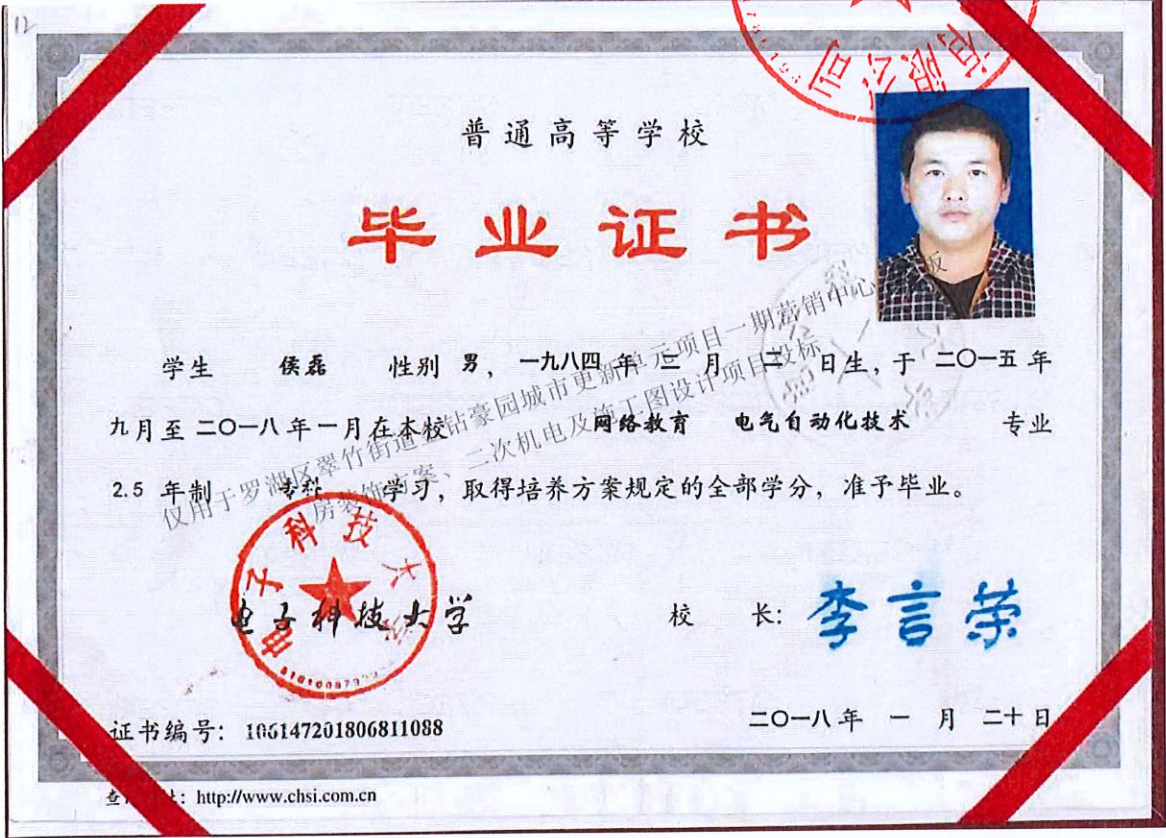 12
有限公司
普通高等学校
毕业证书
学生 侯磊 性别 男，一九八四年 二 月 二 日生，于 二〇一五 年
九月至 二〇一八 年 一 月在本校 网络教育 电气自动化技术 专业
2.5 年制 专科 学习，取得培养方案规定的全部学分，准予毕业。
仅用于罗湖区翠竹街道 钻豪园城市更新单元项目一期营销中心 板
房装饰方案、二次机电及施工图设计项目投标
电子科技大学
电子科技大学
校 长：李言荣
证书编号：106147201806811088
二〇一八年 一 月 二十 日
查 址：http://www.chsi.com.cn